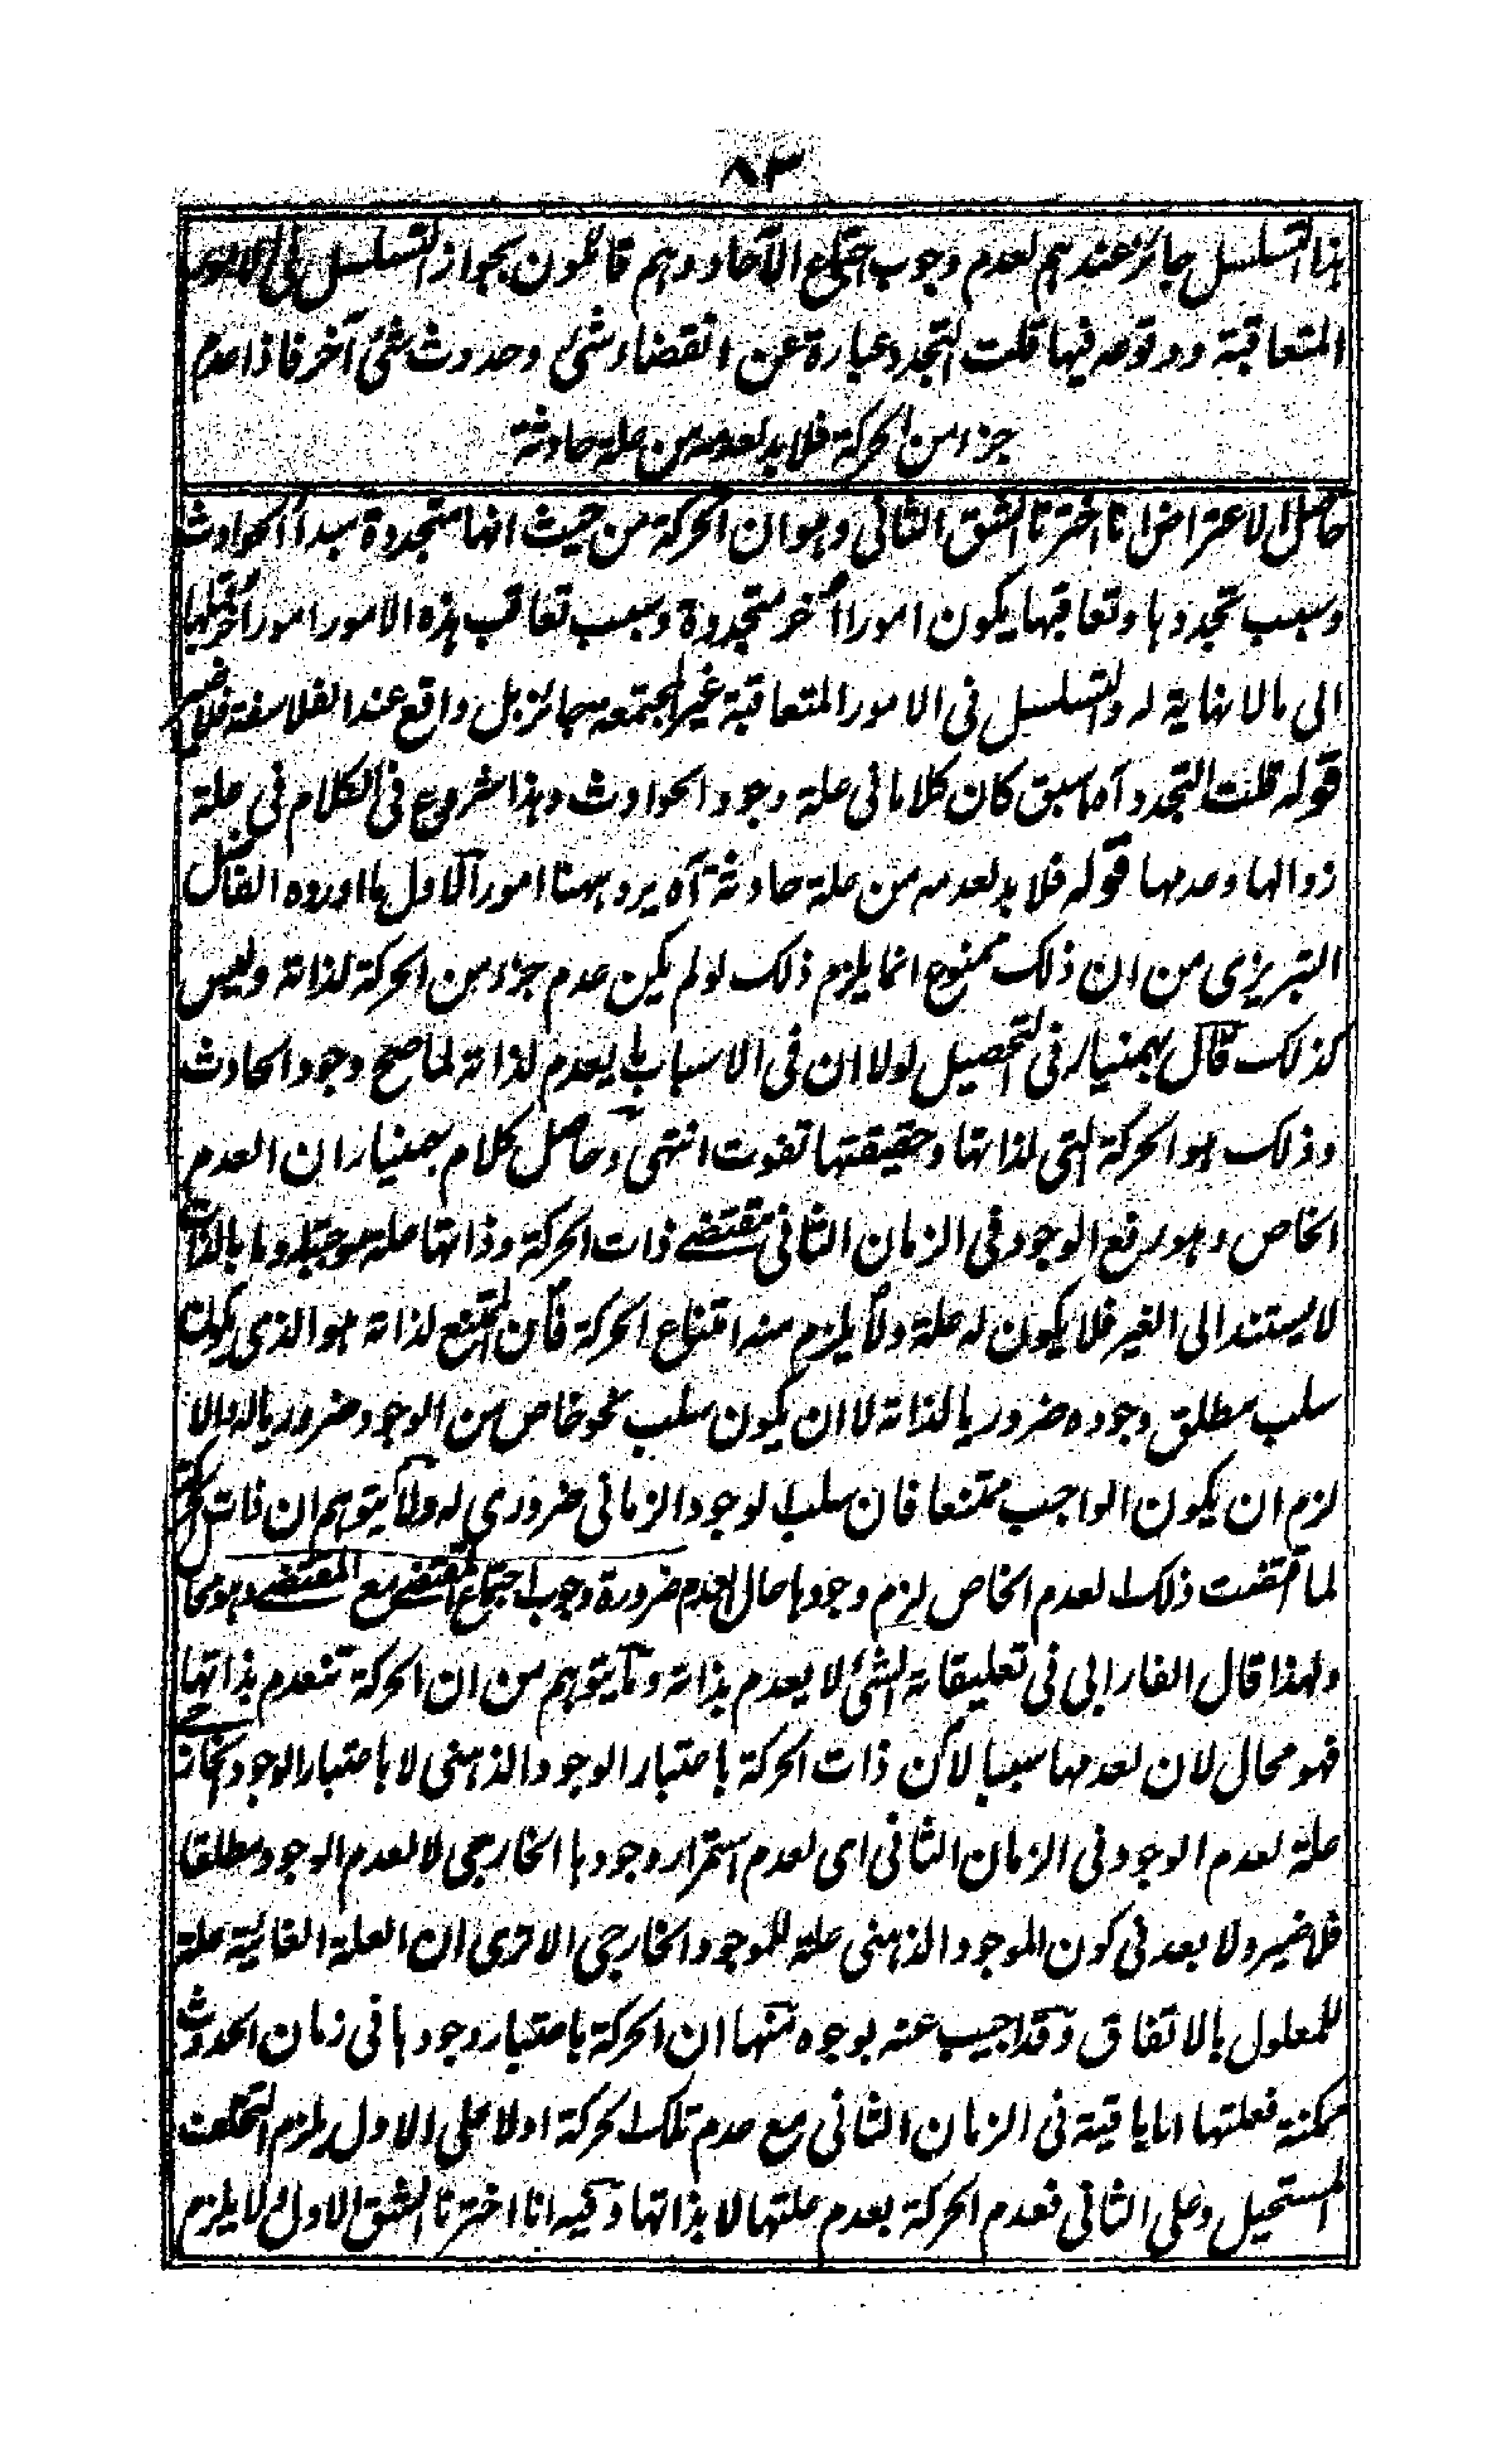 ٨٣
هذا التسلسل جائز عندهم لعدم وجوب اجتماع الآحاد وهم قائلون بجواز التسلسل فى الامور
المتعاقبة ووقوعه فيها قلت التجدد عبارة عن انقضاء شئ وحدوث شئ آخر فاذا عدم
جزء من الحركة فلا بد لعدمه من علة حادثة
حاصل الاعتراض انا اخترنا الشق الثانى وهو ان الحركة من حيث انها متجددة مبدأ الحوادث
وسبب تجددها وتعاقبها يكون امورا أخر متجددة وسبب تعاقب هذه الامور امورا أخر قبلها
الى مالا نهاية له والتسلسل فى الامور المتعاقبة غير المجتمعة جائز بل واقع عند الفلاسفة فلا ضير
قوله قلت التجدد آه ما سبق كان كلاما فى علة وجود الحوادث وهذا شروع فى الكلام فى علة
زوالها وعدمها قوله فلا بد لعدمه من علة حادثة آه يرد ههنا امور الاول ما اورده الفاضل
التبريزى من ان ذلك ممنوع انما يلزم ذلك لو لم يكن عدم جزء من الحركة لذاته وليس
كذلك قال بهمنيار فى التحصيل لولا ان فى الاسباب ما يعدم لذاته لما صح وجود الحادث
وذلك هو الحركة التى لذاتها وحقيقتها تفوت انتهى وحاصل كلام بهمنيار ان العدم
الخاص وهو رفع الوجود فى الزمان الثانى مقتضے ذات الحركة وذاتها علة موجبة له وما بالذات
لا يستند الى الغير فلا يكون له علة ولا يلزم منه امتناع الحركة فان الممتنع لذاته هو الذى يكون
سلب مطلق وجوده ضروريا لذاته لا ان يكون سلب نحو خاص من الوجود ضروريا له والا
لزم ان يكون الواجب ممتنعا فان سلب الوجود الزمانى ضرورى له وما يتوهم ان ذات الحركة
لما اقتضت ذلك العدم الخاص لزم وجودها حال العدم ضرورة وجوب اجتماع المقتضى مع المقتضے وهو محال
ولهذا قال الفارابى فى تعليقاته الشئ لا يعدم بذاته وما يتوهم من ان الحركة تنعدم بذاتها
فهو محال لان لعدمها سببا لان ذات الحركة باعتبار الوجود الذهنى لا باعتبار الوجود الخارجے
علة لعدم الوجود فى الزمان الثانى اى لعدم استمرار وجودها الخارجى لا لعدم الوجود مطلقا
فلا ضير ولا بعد فى كون الموجود الذهنى علة للموجود الخارجى الا ترى ان العلة الغائية علة
للمعلول بالاتفاق وقد اجيب عنه بوجوه منها ان الحركة باعتبار وجودها فى زمان الحدوث
ممكنة فعلتها اما باقية فى الزمان الثانى مع عدم تلك الحركة اولا على الاول يلزم التخلف
المستحيل وعلى الثانى فعدم الحركة بعدم علتها لا بذاتها وفيه انا اخترنا الشق الاول ولا يلزم